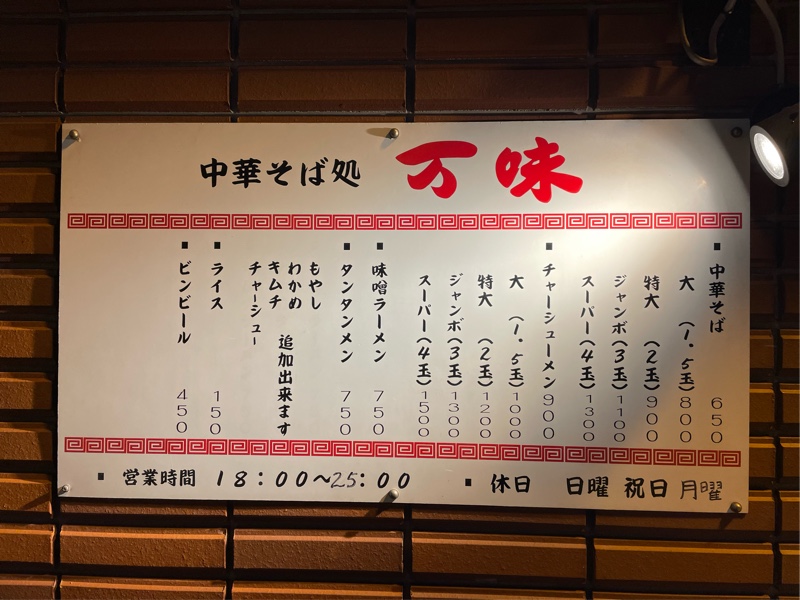 中華そば処 万味
■中華そば 650
大 (1.5玉) 800
特大 (2玉) 900
ジャンボ(3玉) 1100
スーパー(4玉) 1300
■チャーシューメン 900
大 (1.5玉) 1000
特大 (2玉) 1200
ジャンボ(3玉) 1300
スーパー(4玉) 1500
■味噌ラーメン 750
■タンタンメン 750
もやし
わかめ 追加出来ます
キムチ
チャーシュー
■ライス 150
■ビンビール 450
■ 営業時間 18:00〜25:00 ■ 休日 日曜 祝日 月曜